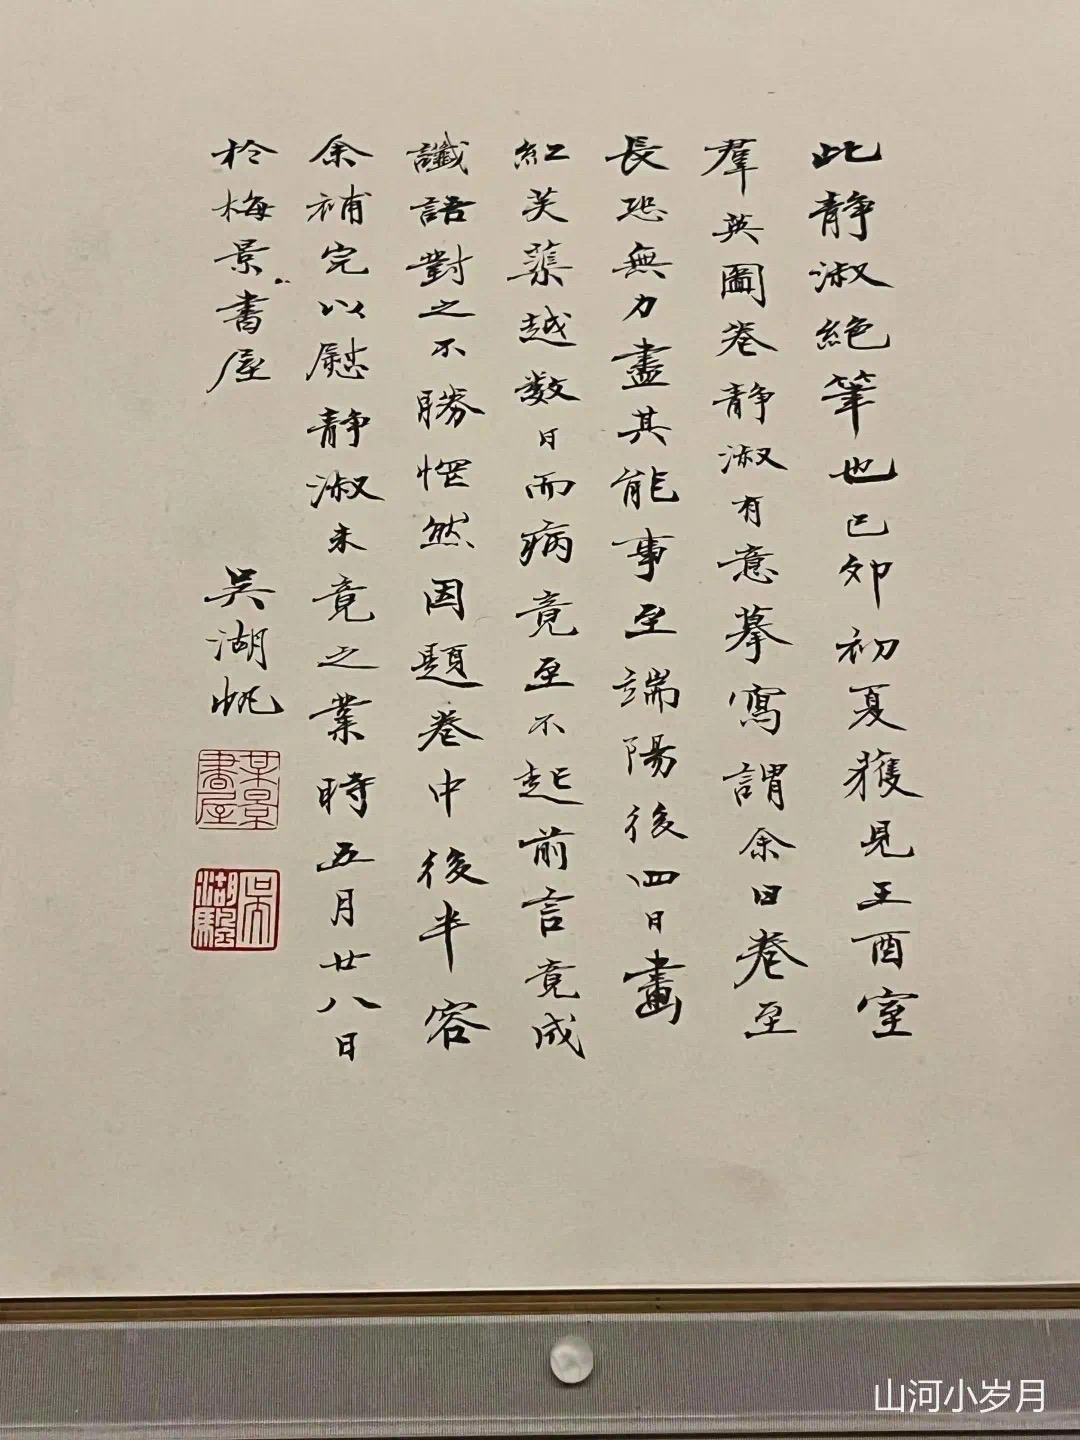 此靜淑絕筆也己卯初夏獲見王酉室
羣英圖卷靜淑有意摹寫謂余曰卷至
長恐無力盡其能事至端陽後四日畫
紅芙蕖越數日而病竟至不起前言竟成
讖語對之不勝惘然因題卷中後半容
余補完以慰靜淑未竟之業時五月廿八日
於梅景書屋
吳湖帆
某景書屋
吳湖驪
山河小岁月